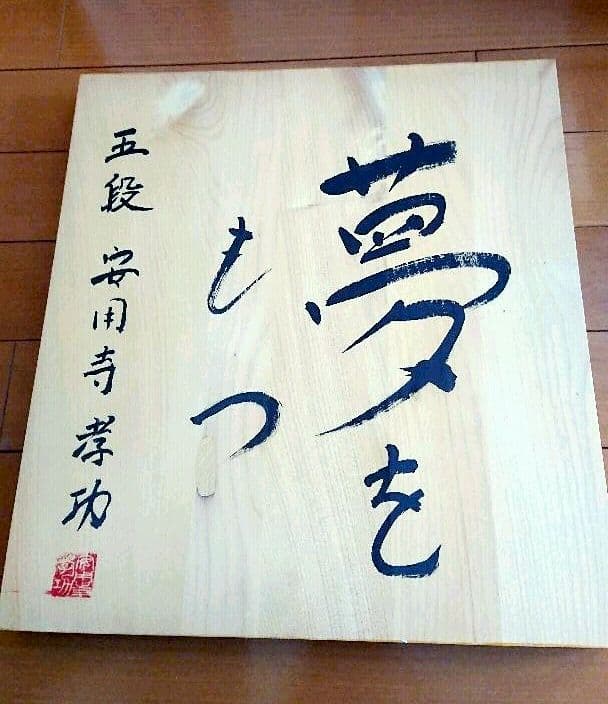 夢を
もつ
五段 安用寺孝功